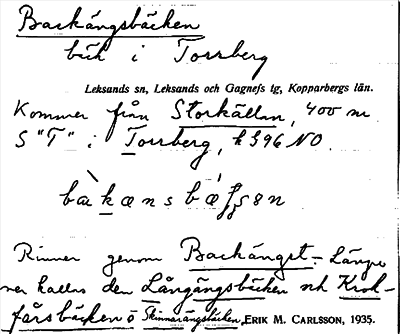 Backängsbäcken
bäck i Torrberg
Leksands sn, Leksands och Gagnefs tg, Kopparbergs län.
Kommer från Storkällan, 400 m
S "T" i Torrberg, k 396 NO.
Rinner genom Backänget. – Länge
ner kallas den Långängsbäcken och Krok-
forsbäcken o Skinnarängsbäcken, ERIK M. CARLSSON, 1935.